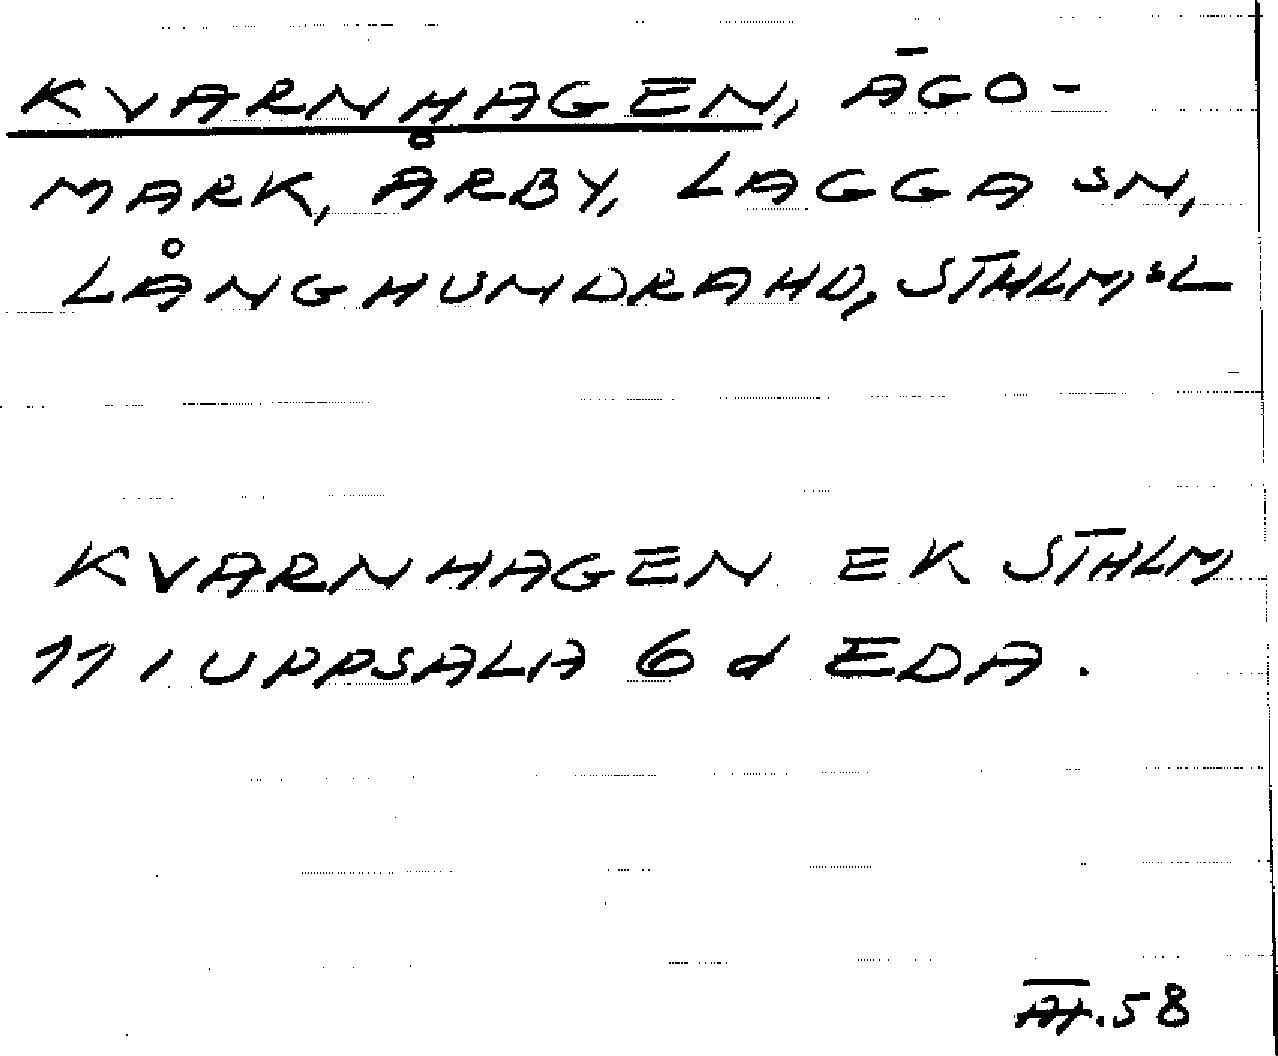 KVARNHAGEN, ÄGO-
MARK, ÅRBY, LAGGA SN,
LÅNGHUNDRA HD, STHLM:S L
KVARNHAGEN EK STHLM,
11, UPPSALA 6 d EDA.
.58